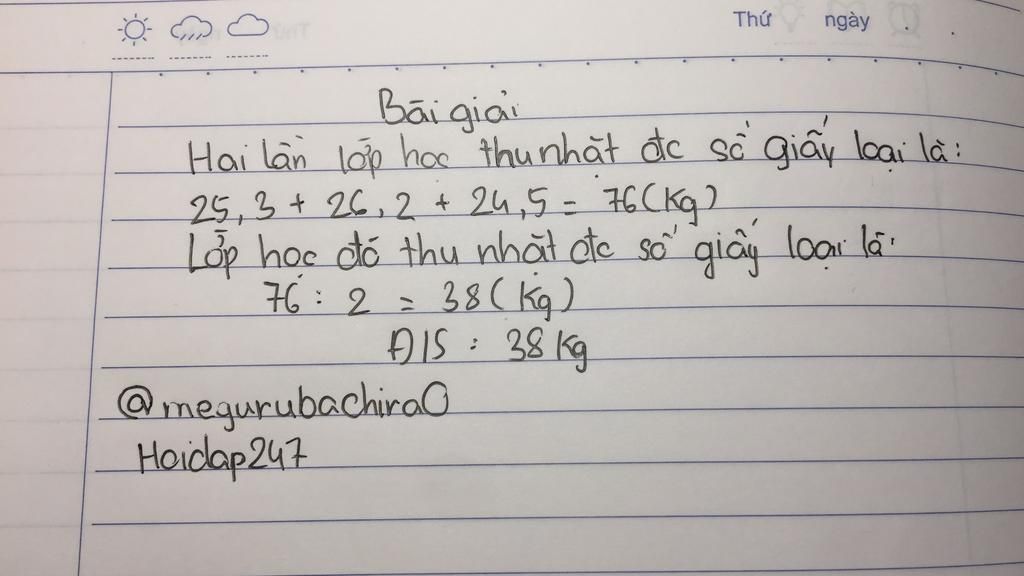 Thứ ngày
Bài giải
Hai lần lớp học thu nhặt đc số giấy loại là:
25,3 + 26,2 + 24,5 = 76(Kg)
Lớp học đó thu nhặt đc số giấy loại là:
76 : 2 = 38(Kg)
Đ/S : 38Kg
@megurubachira0
Hoidap247